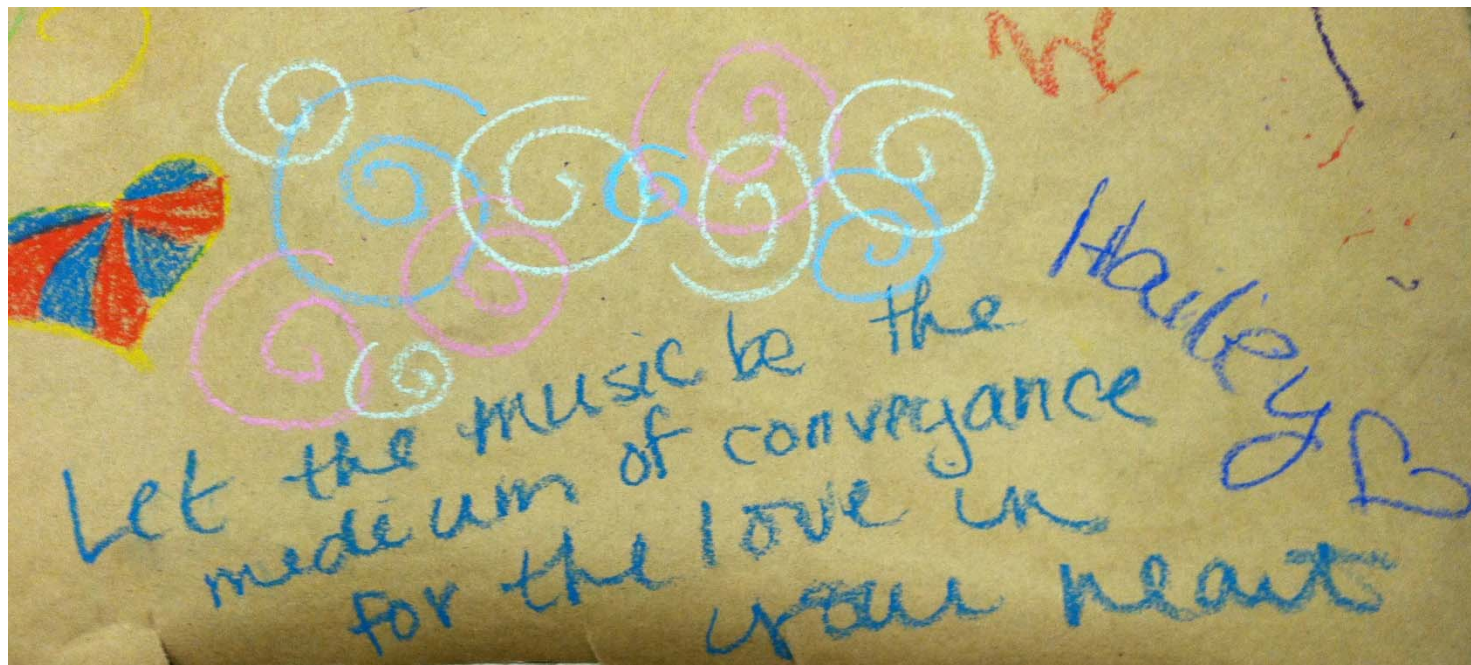 Let the music be the
medium of conveyance
for the love in
your hearts
Hailey